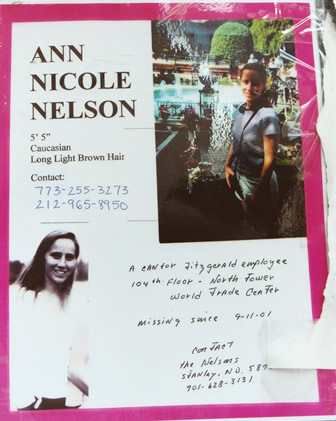 ANN
NICOLE
NELSON
5' 5"
Caucasian
Long Light Brown Hair
Contact:
773-255-3273
212-965-8950
A Cantor Fitzgerald employee
104th Floor - North Tower
World Trade Center
Missing since 9-11-01
Contact
the Nelsons
Stanley, N.D. 587
701-628-3131